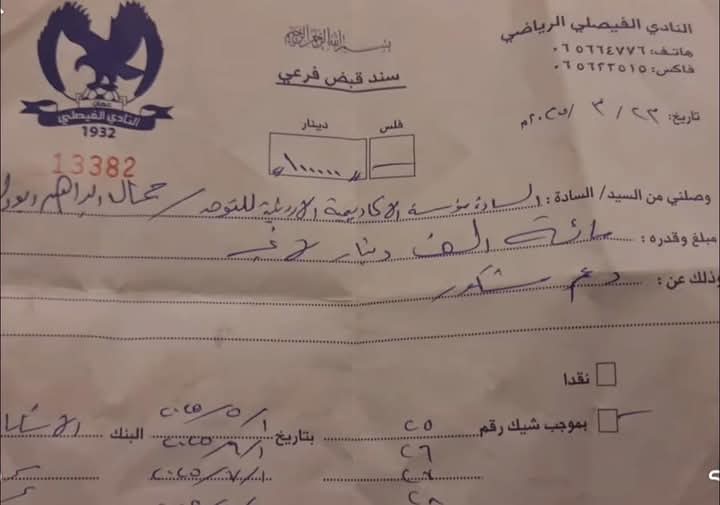 النادي الفيصلي الرياضي
هاتف: ٠٦ ٥٦٦٤٧٧٦
فاكس: ٠٦ ٥٦٢٢٥١٥
بسم الله الرحمن الرحيم
سند قبض فرعي
عمان
النادي الفيصلي
1932
13382
تاريخ: ٢٣ / ٣ / ٢٠٢٥م
فلس دينار
١٠٠٠٠٠
وصلني من السيد/ السادة: السادة مؤسسة الأكاديمية الأردنية للتوحد / جمال وإبراهيم
مبلغ وقدره: مائة الف دينار لا غير
وذلك عن: دعم مشكور
نقدا
بموجب شيك رقم ٢٥ بتاريخ ١/٥/٢٠٢٥ البنك
٢٦ ١/٦/٢٠٢٥
١/٧/٢٠٢٥
٢٨